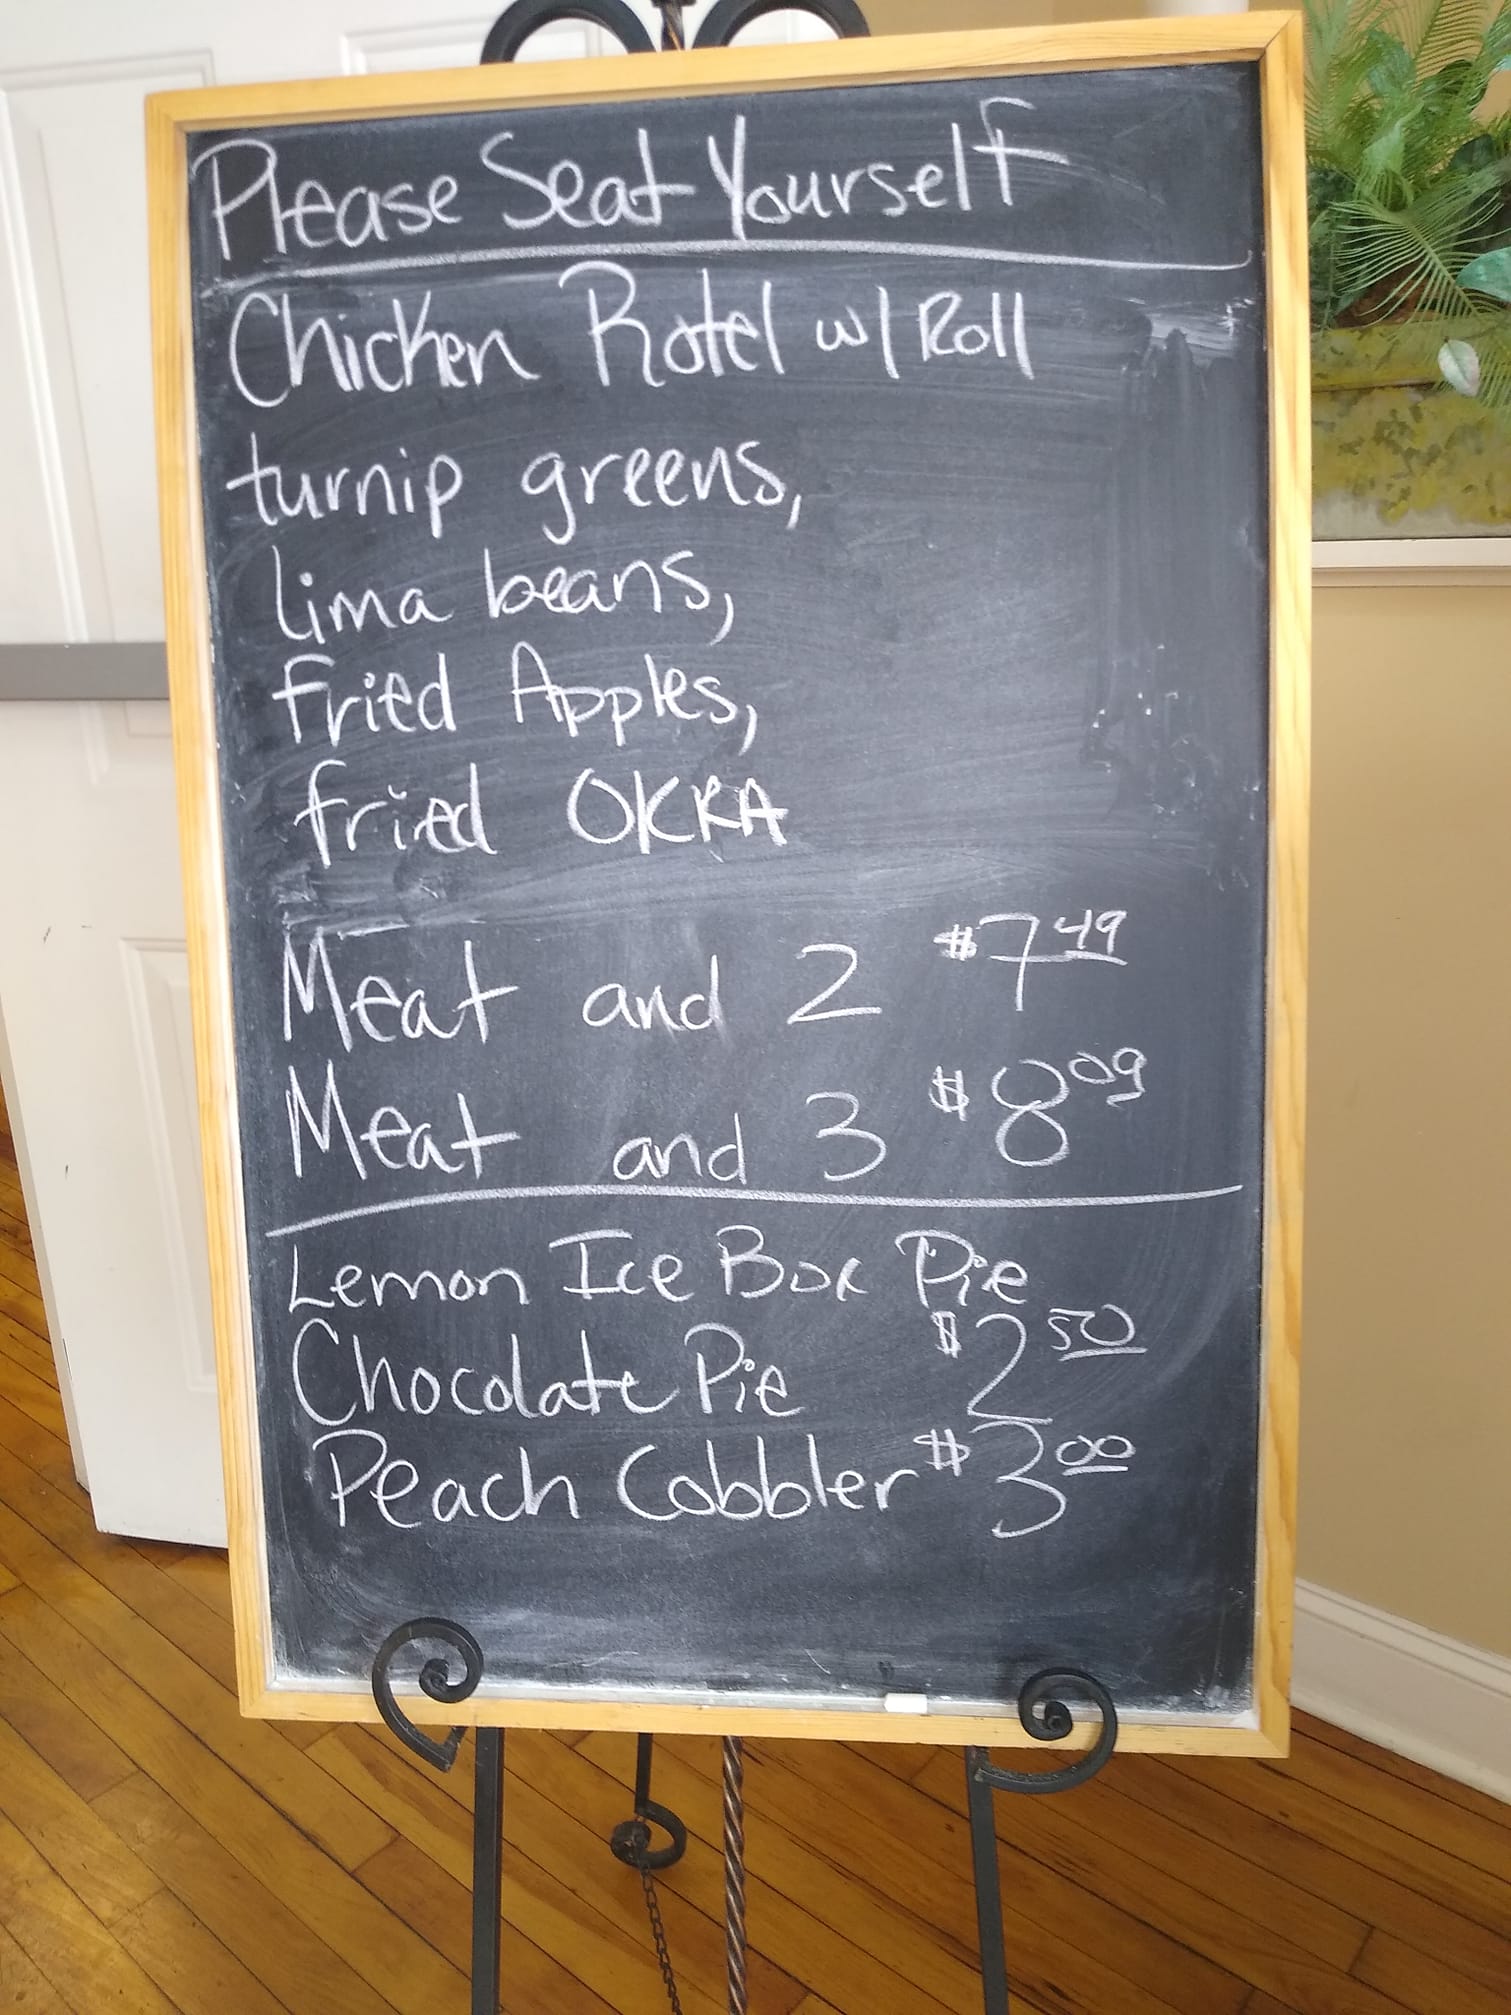 Please Seat Yourself
Chicken Rotel w/ Roll
turnip greens,
lima beans,
fried Apples,
fried OKRA
Meat and 2 $7.49
Meat and 3 $8.09
Lemon Ice Box Pie
Chocolate Pie $2.50
Peach Cobbler $3.00